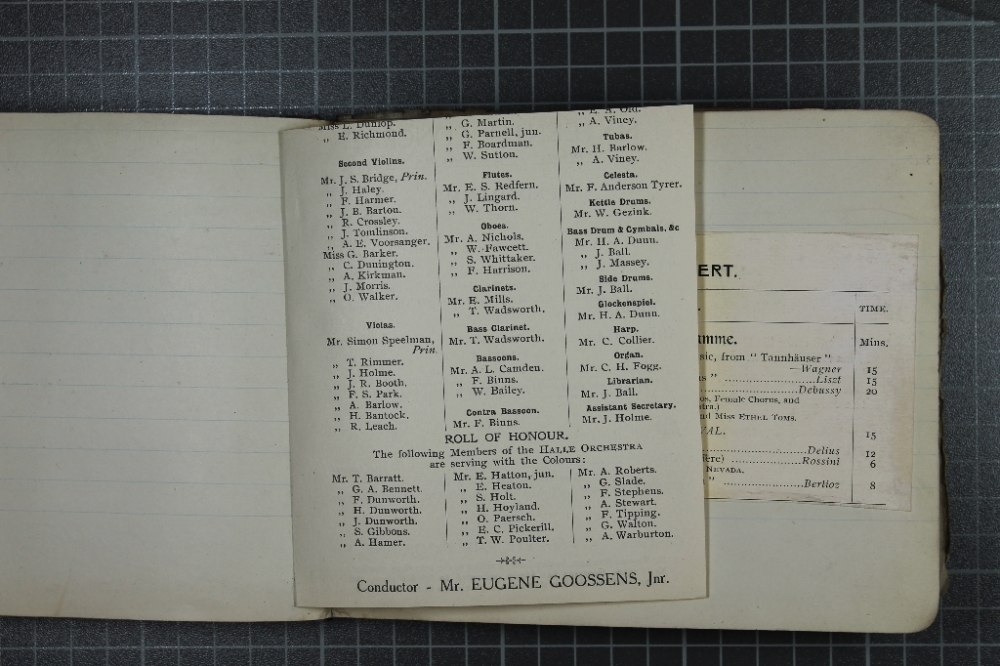 Miss L. Dunlop.
„ E. Richmond.
Second Violins.
Mr. J. S. Bridge, Prin.
„ J. Haley.
„ F. Harmer.
„ J. B. Barton.
„ R. Crossley.
„ J. Tomlinson.
„ A. E. Voorsanger.
Miss G. Barker.
„ C. Dunington.
„ A. Kirkman.
„ J. Morris.
„ O. Walker.
Violas.
Mr. Simon Speelman,
Prin.
„ T. Rimmer.
„ J. Holme.
„ J. R. Booth.
„ F. S. Park.
„ A. Barlow.
„ H. Bantock.
„ R. Leach.
„ G. Martin.
„ G. Parnell, jun.
„ F. Boardman.
„ W. Sutton.
Flutes.
Mr. E. S. Redfern.
„ J. Lingard.
„ W. Thorn.
Oboes.
Mr. A. Nichols.
„ W. Fawcett.
„ S. Whittaker.
„ F. Harrison.
Clarinets.
Mr. E. Mills.
„ T. Wadsworth.
Bass Clarinet.
Mr. T. Wadsworth.
Bassoons.
Mr. A. L. Camden.
„ F. Binns.
„ W. Bailey.
Contra Bassoon.
Mr. F. Binns.
„ E. A. Old.
„ A. Viney.
Tubas.
Mr. H. Barlow.
„ A. Viney.
Celesta.
Mr. F. Anderson Tyrer.
Kettle Drums.
Mr. W. Gezink.
Bass Drum & Cymbals, &c
Mr. H. A. Dunn.
„ J. Ball.
„ J. Massey.
Side Drums.
Mr. J. Ball.
Glockenspiel.
Mr. H. A. Dunn.
Harp.
Mr. C. Collier.
Organ.
Mr. C. H. Fogg.
Librarian.
Mr. J. Ball.
Assistant Secretary.
Mr. J. Holme.
ROLL OF HONOUR.
The following Members of the HALLE ORCHESTRA
are serving with the Colours:
Mr. T. Barratt.
„ G. A. Bennett.
„ F. Dunworth.
„ H. Dunworth.
„ J. Dunworth.
„ S. Gibbons.
„ A. Hamer.
Mr. E. Hatton, jun.
„ E. Heaton.
„ S. Holt.
„ H. Hoyland.
„ O. Paersch.
„ E. C. Pickerill.
„ T. W. Poulter.
Mr. A. Roberts.
„ G. Slade.
„ F. Stephens.
„ A. Stewart.
„ F. Tipping.
„ G. Walton.
„ A. Warburton.
Conductor - Mr. EUGENE GOOSSENS, Jnr.
ERT.
TIME.
mme.
Mins.
sic, from "Tannhäuser"
—Wagner 15
" ..........Liszt 15
Debussy 20
os, Female Chorus, and
tra.)
nd Miss ETHEL TOMS.
VAL. 15
Delius 12
ère) ..........Rossini 6
NEVADA.
" ..........Berlioz 8